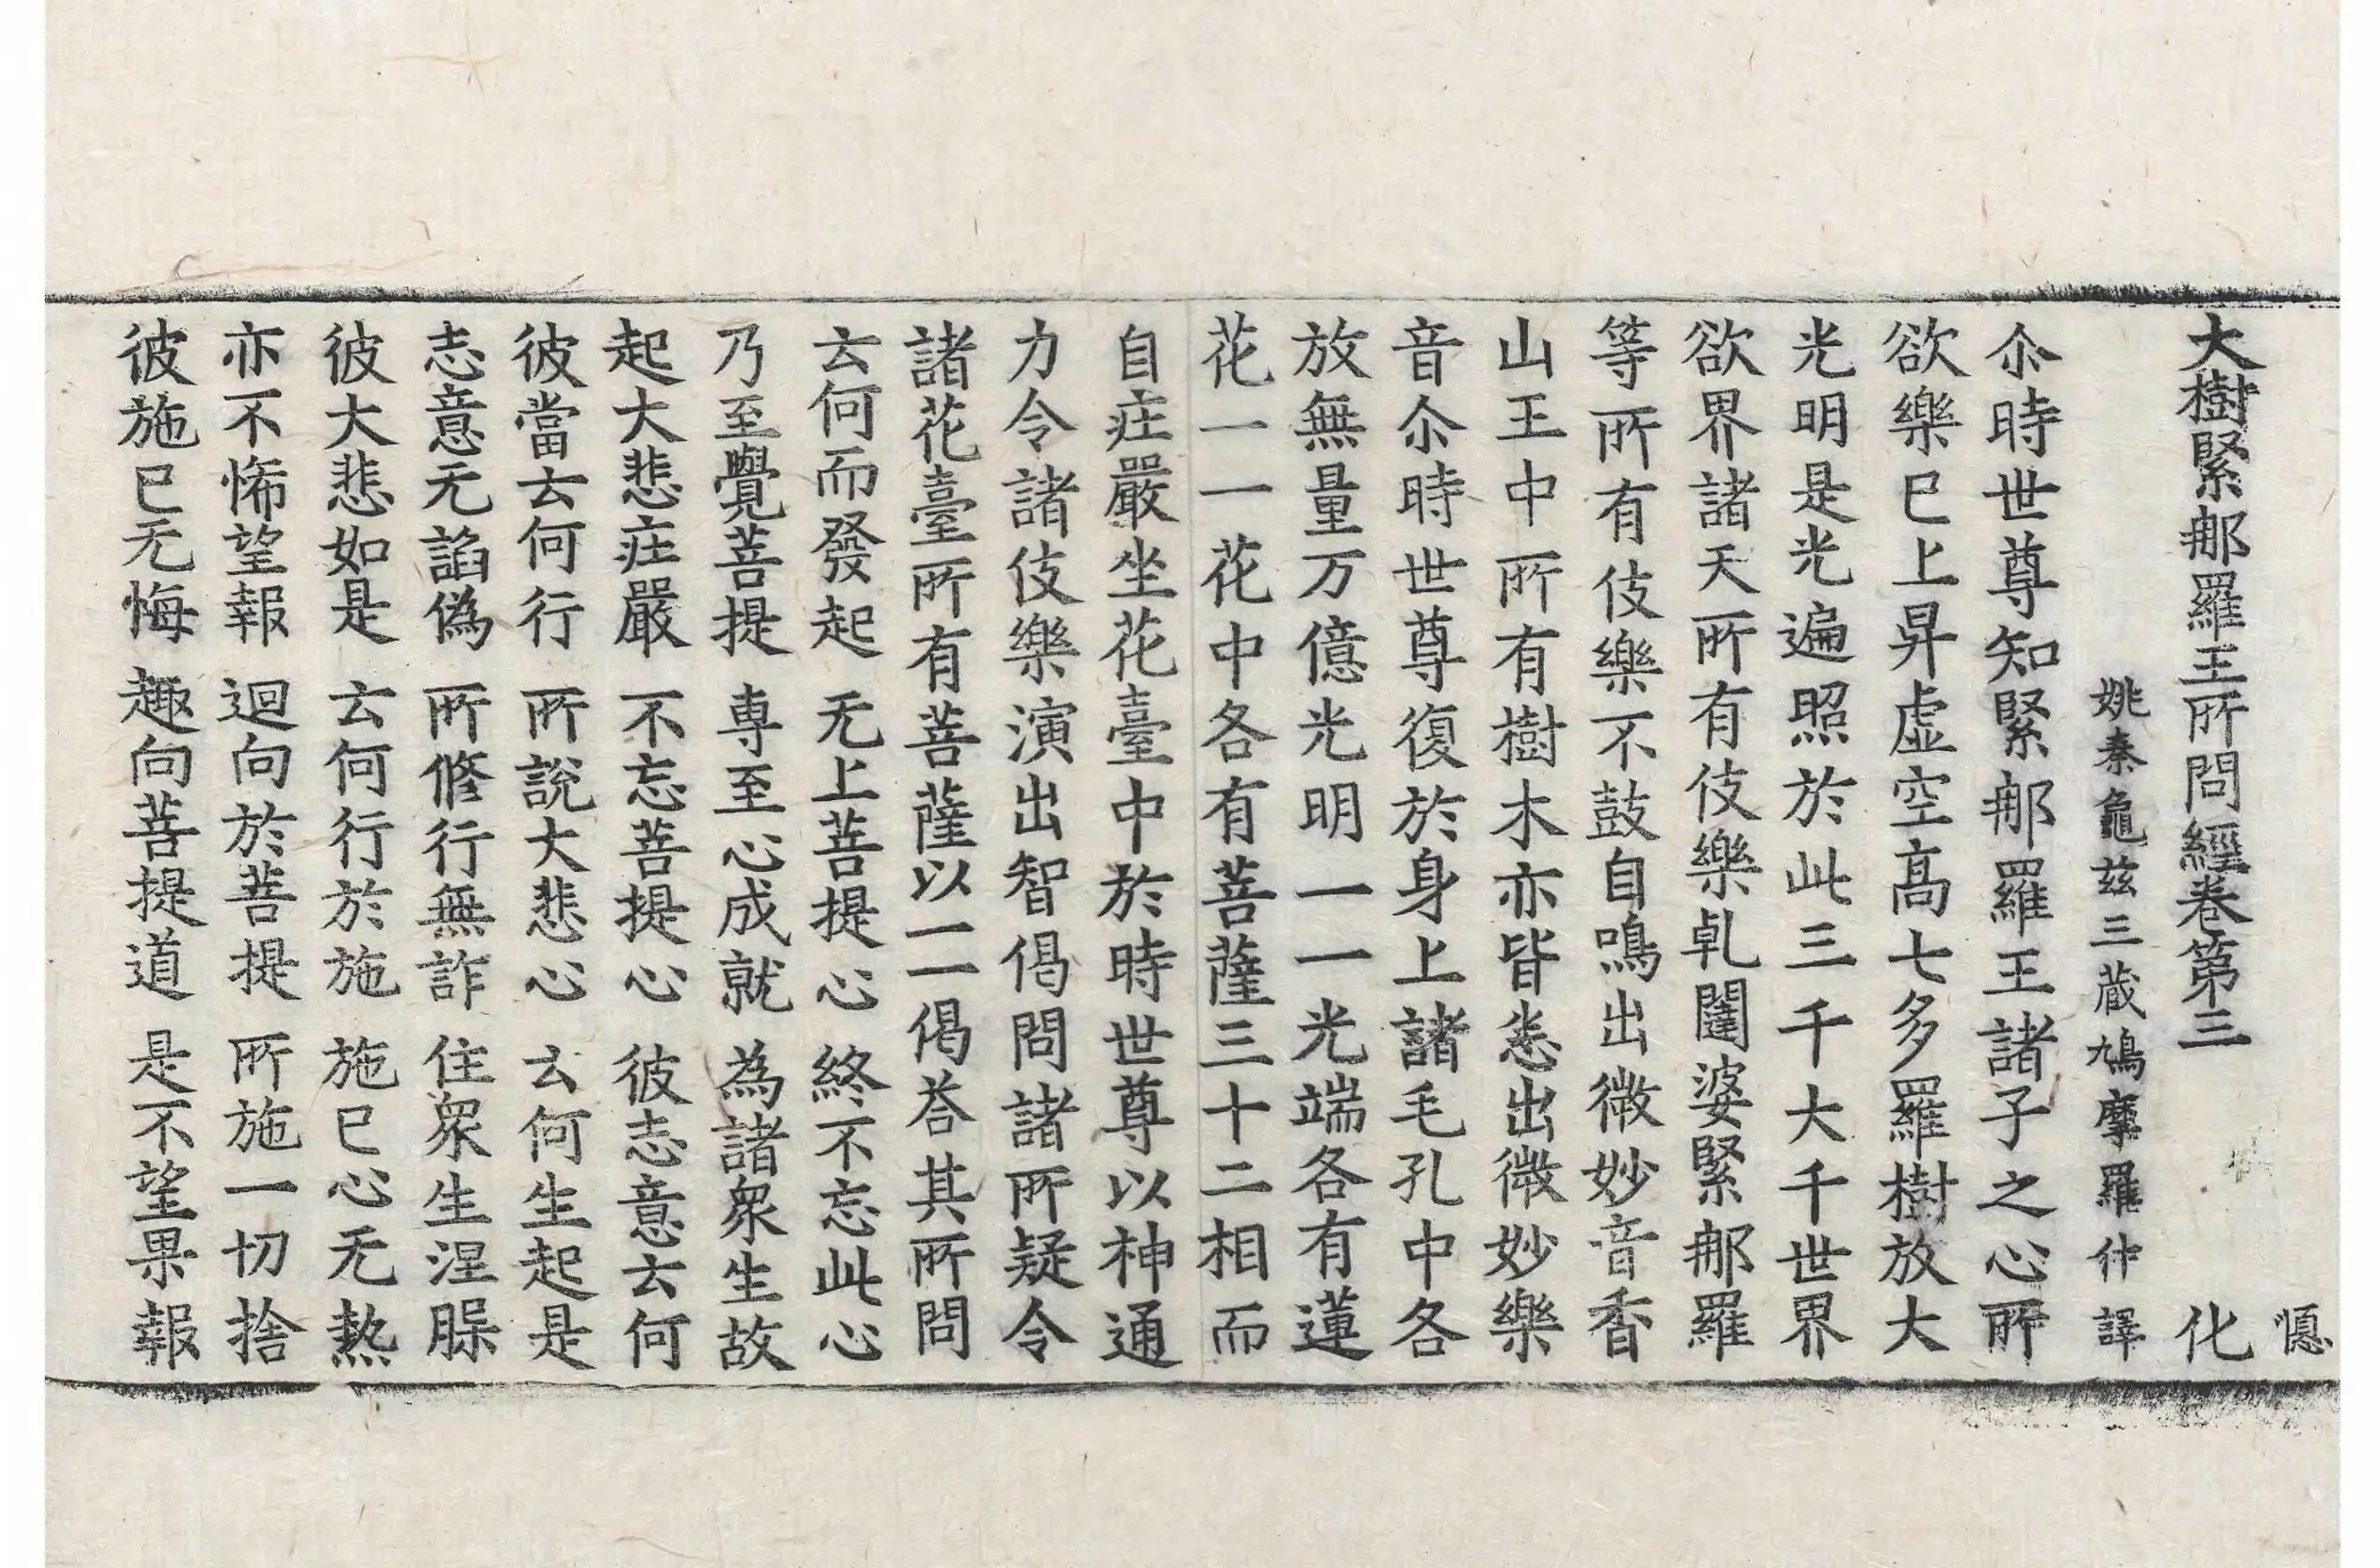 㥧
大樹緊那羅王所問經卷第三 化
姚秦龜兹三藏鳩摩羅什譯
尒時世尊知緊那羅王諸子之心所
欲樂巳上昇虛空髙七多羅樹放大
光明是光遍照於此三千大千世界
欲界諸天所有伎樂乹闥婆緊那羅
等所有伎樂不鼓自鳴出微妙音香
山王中所有樹木亦皆悉出微妙樂
音尒時世尊復於身上諸毛孔中各
放無量万億光明一一光端各有蓮
花一一花中各有菩薩三十二相而
自莊嚴坐花臺中於時世尊以神通
力令諸伎樂演出智偈問諸所疑令
諸花臺所有菩薩以一一偈荅其所問
云何而發起 无上菩提心 終不忘此心
乃至覺菩提 專至心成就 為諸衆生故
起大悲莊嚴 不忘菩提心 彼志意云何
彼當云何行 所說大悲心 云何生起是
志意无諂偽 所修行無詐 住衆生涅槃
彼大悲如是 云何行於施 施巳心无熱
亦不悕望報 迴向於菩提 所施一切捨
彼施巳无悔 趣向菩提道 是不望果報